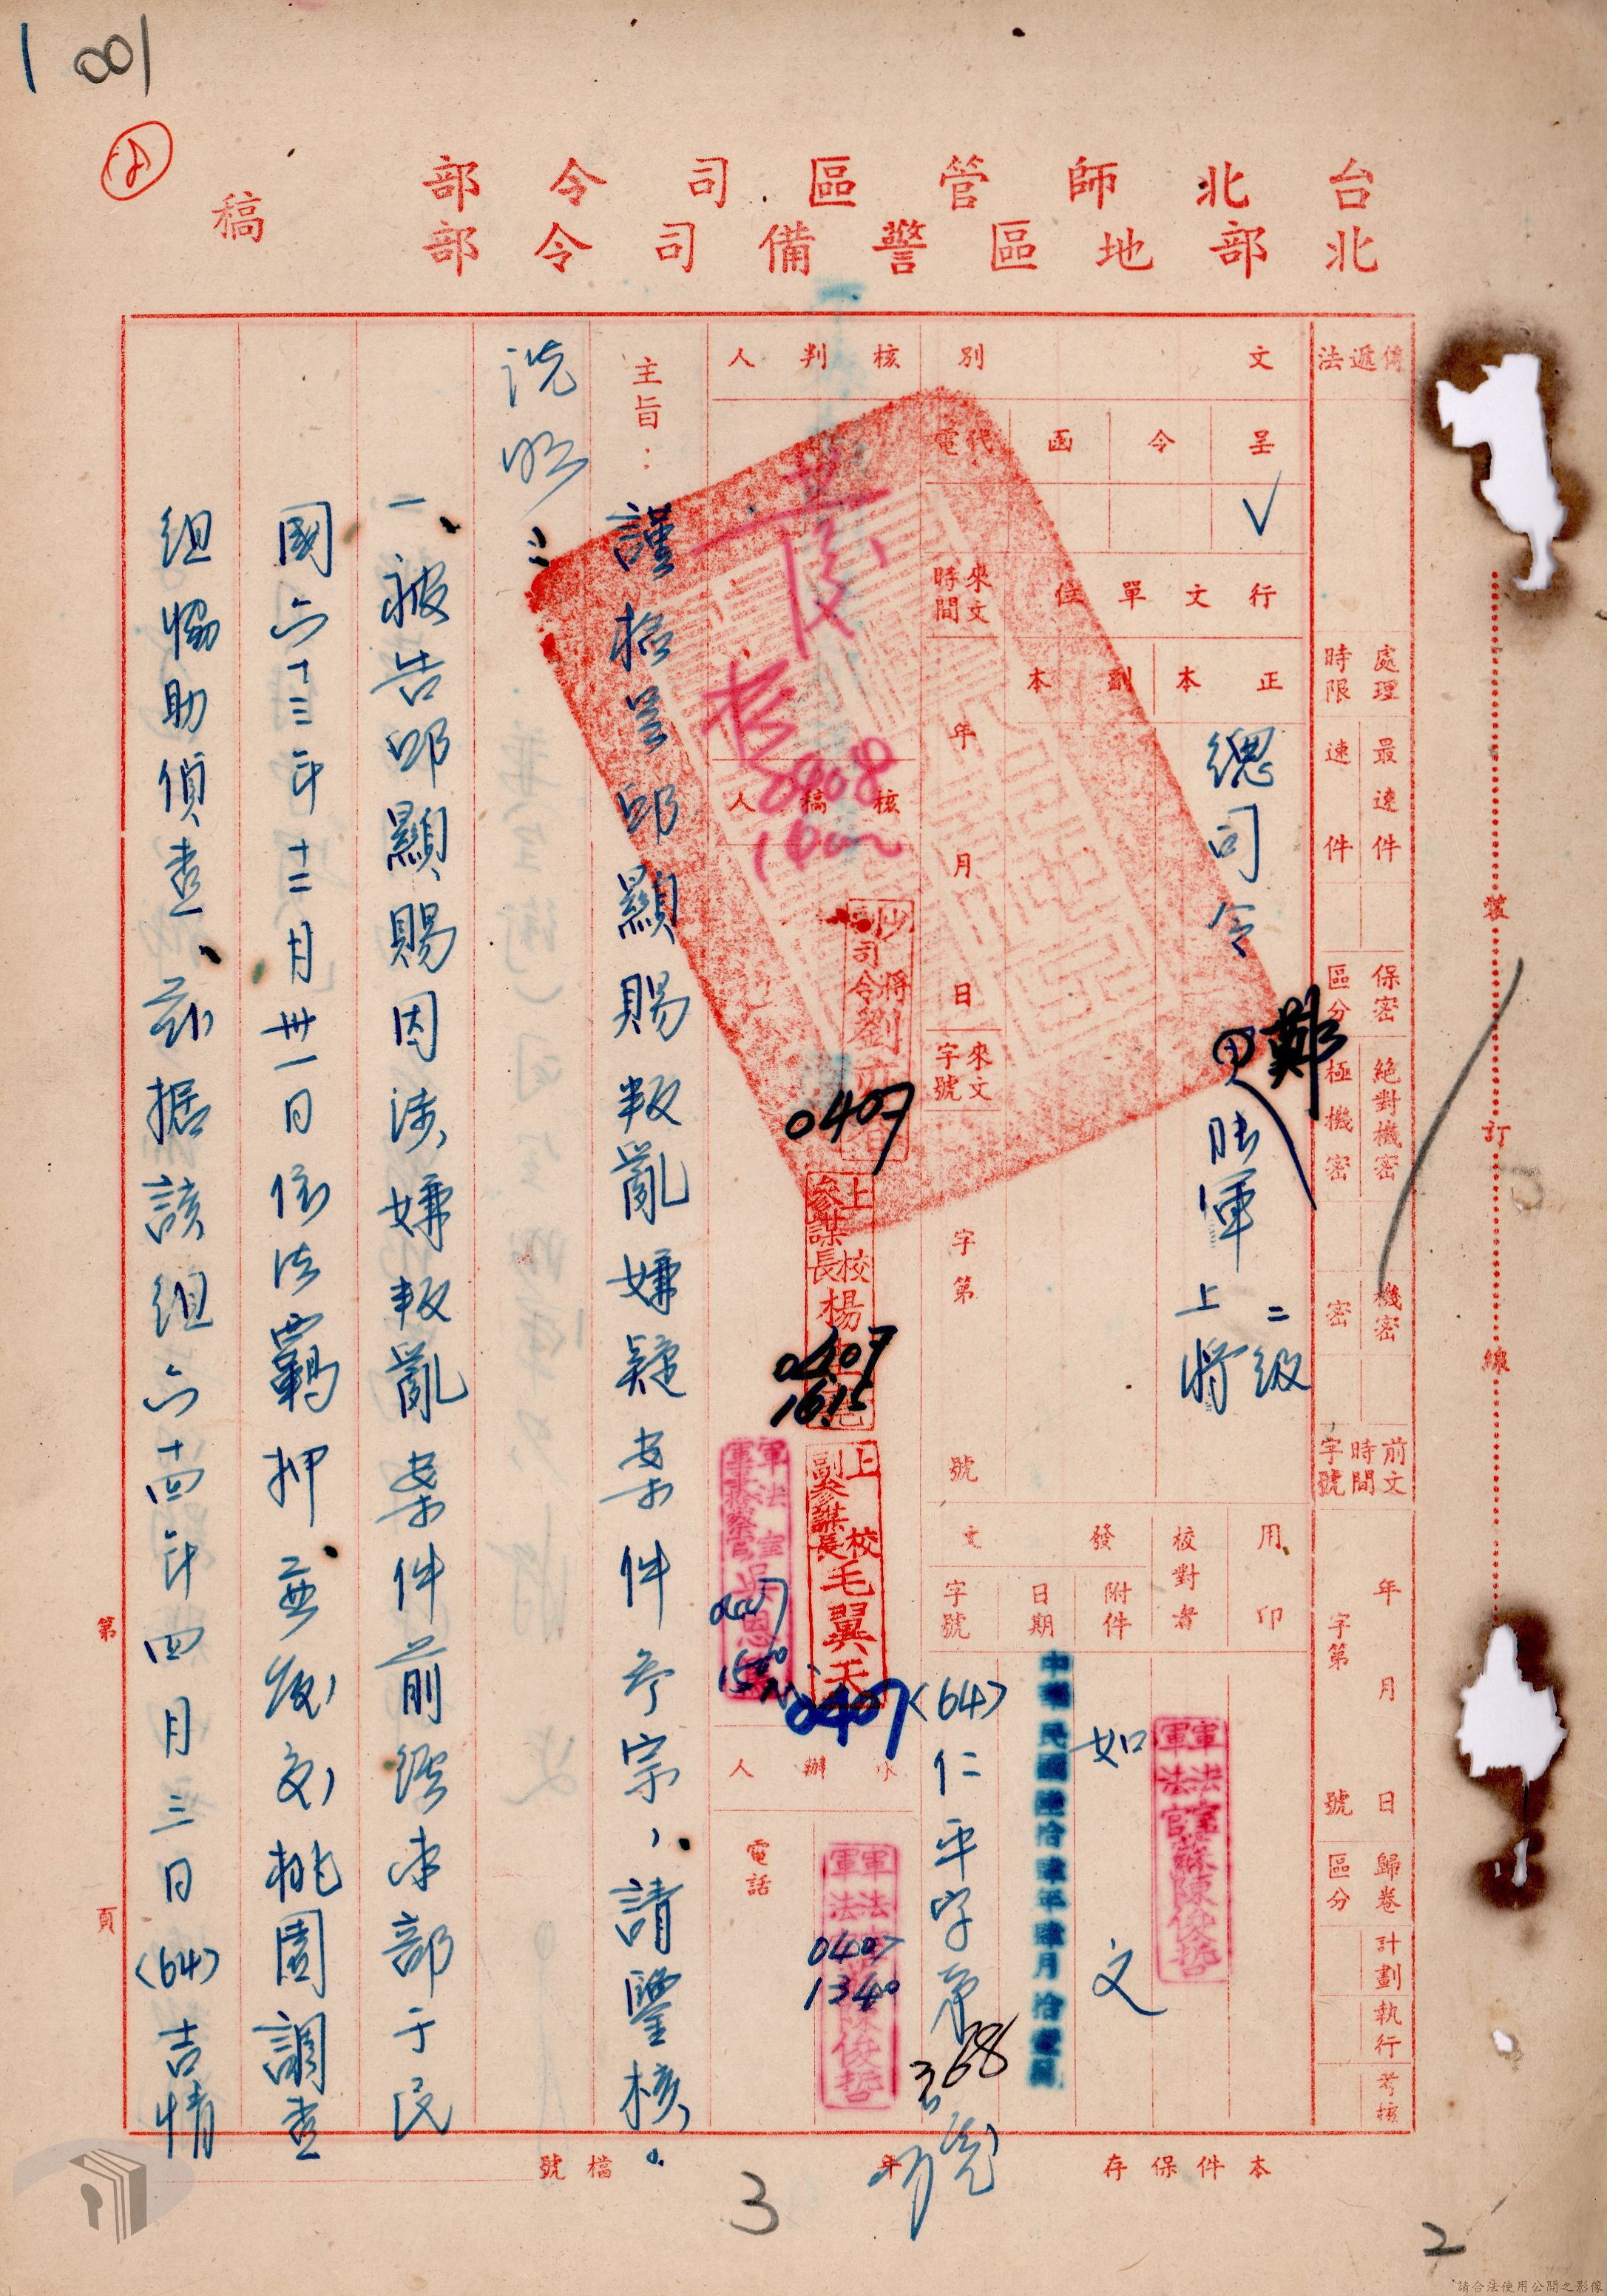 1
001
台北師管區司令部
北部地區警備司令部
稿
傳遞法
處理時限
最速件
速件
保密區分
絕對機密
極機密
機密
密
前文時間字號
年月日
字第號
歸卷區分
計劃
執行
考核
文別
呈
令
函
代電
✓
行文單位
正本
副本
總司令鄭
陸軍二級上將
來文時間
年月日
來文字號
字第號
用印
校對者
軍法室軍法官蘇陳俊哲
發文
附件
如文
日期
中華民國陸拾肆年肆月拾
字號
(64)仁平字第368號
核判人
核稿人
0408
少將司令劉
0407
上校參謀長楊
0407
1615
上校副參謀長毛翼天
0407
軍法室軍事檢察官吳恩
0407
承辦人
電話
0407
1340
陳俊哲
主旨:謹檢呈邱顯賜叛亂嫌疑案件參宗,請鑒核。
說明:
一、被告邱顯賜因涉嫌叛亂案件前經本部于民
國六十三年十二月卅一日依法羈押並函交桃園調查
組協助偵查、茲據該組六十四年四月三日(64)吉情
第頁
檔號
年
本件保存
裝訂線
3
2
請合法使用公開之影像